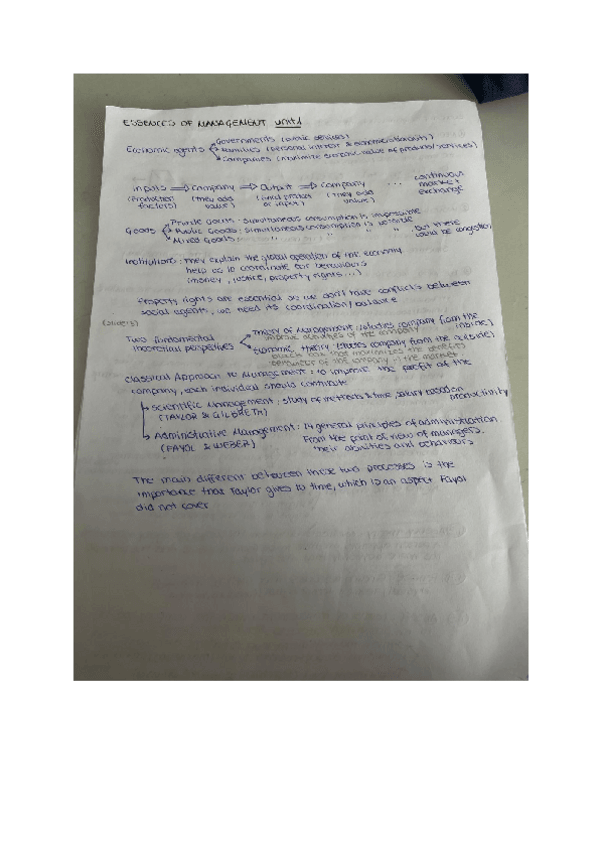 ESSENCES OF MANAGEMENT Unit 1
Governments (public services)
Economic agents Families (personal interest &
Companies (maximize economic value of products/services)
inputs ⇒ company ⇒ Output ⇒ company ... continuous market exchange
(Production factors) (They add value) (final product or input) (They add value)
Private Goods: simultaneous consumption is impossible
Goods Public Goods: simultaneous consumption is possible
Mixed Goods: " " " " , but there could be congestion
Institutions: They explain the global operation of the economy
help us to coordinate our behaviours
(money, justice, property rights...)
Property rights are essential so we don't have conflicts between
social agents, we need its coordination/balance
Two fundamental theoretical perspectives
Theory of Management (studies company from the inside)
improve activities of the company
Economic theory (studies company from the outside)
that maximizes the benefits
behaviour of the company in the market
Classical Approach to Management: to improve the profit of the
company, each individual should contribute
Scientific Management: study of methods & time, salary based on productivity
(TAYLOR & GILBRETH)
Administrative Management: 14 general principles of administration
(FAYOL & WEBER) From the point of view of managers.
their abilities and behaviours
The main different between these two processes is the
importance that Taylor gives to time, which is an aspect Fayol
did not cover